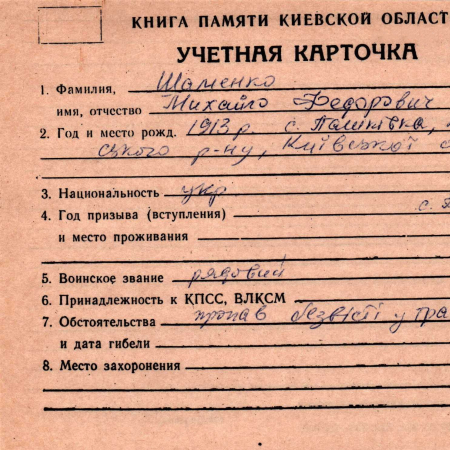 КНИГА ПАМЯТИ КИЕВСКОЙ ОБЛАСТ
УЧЕТНАЯ КАРТОЧКА
1. Фамилия, Шаменко
имя, отчество Михайло Федорович
2. Год и место рожд. 1913 р. с. Пашківка,
ського р-ну, Київської
3. Национальность укр
4. Год призыва (вступления) с.
и место проживания
5. Воинское звание рядовий
6. Принадлежность к КПСС, ВЛКСМ
7. Обстоятельства пропав безвісті у тра
и дата гибели
8. Место захоронения